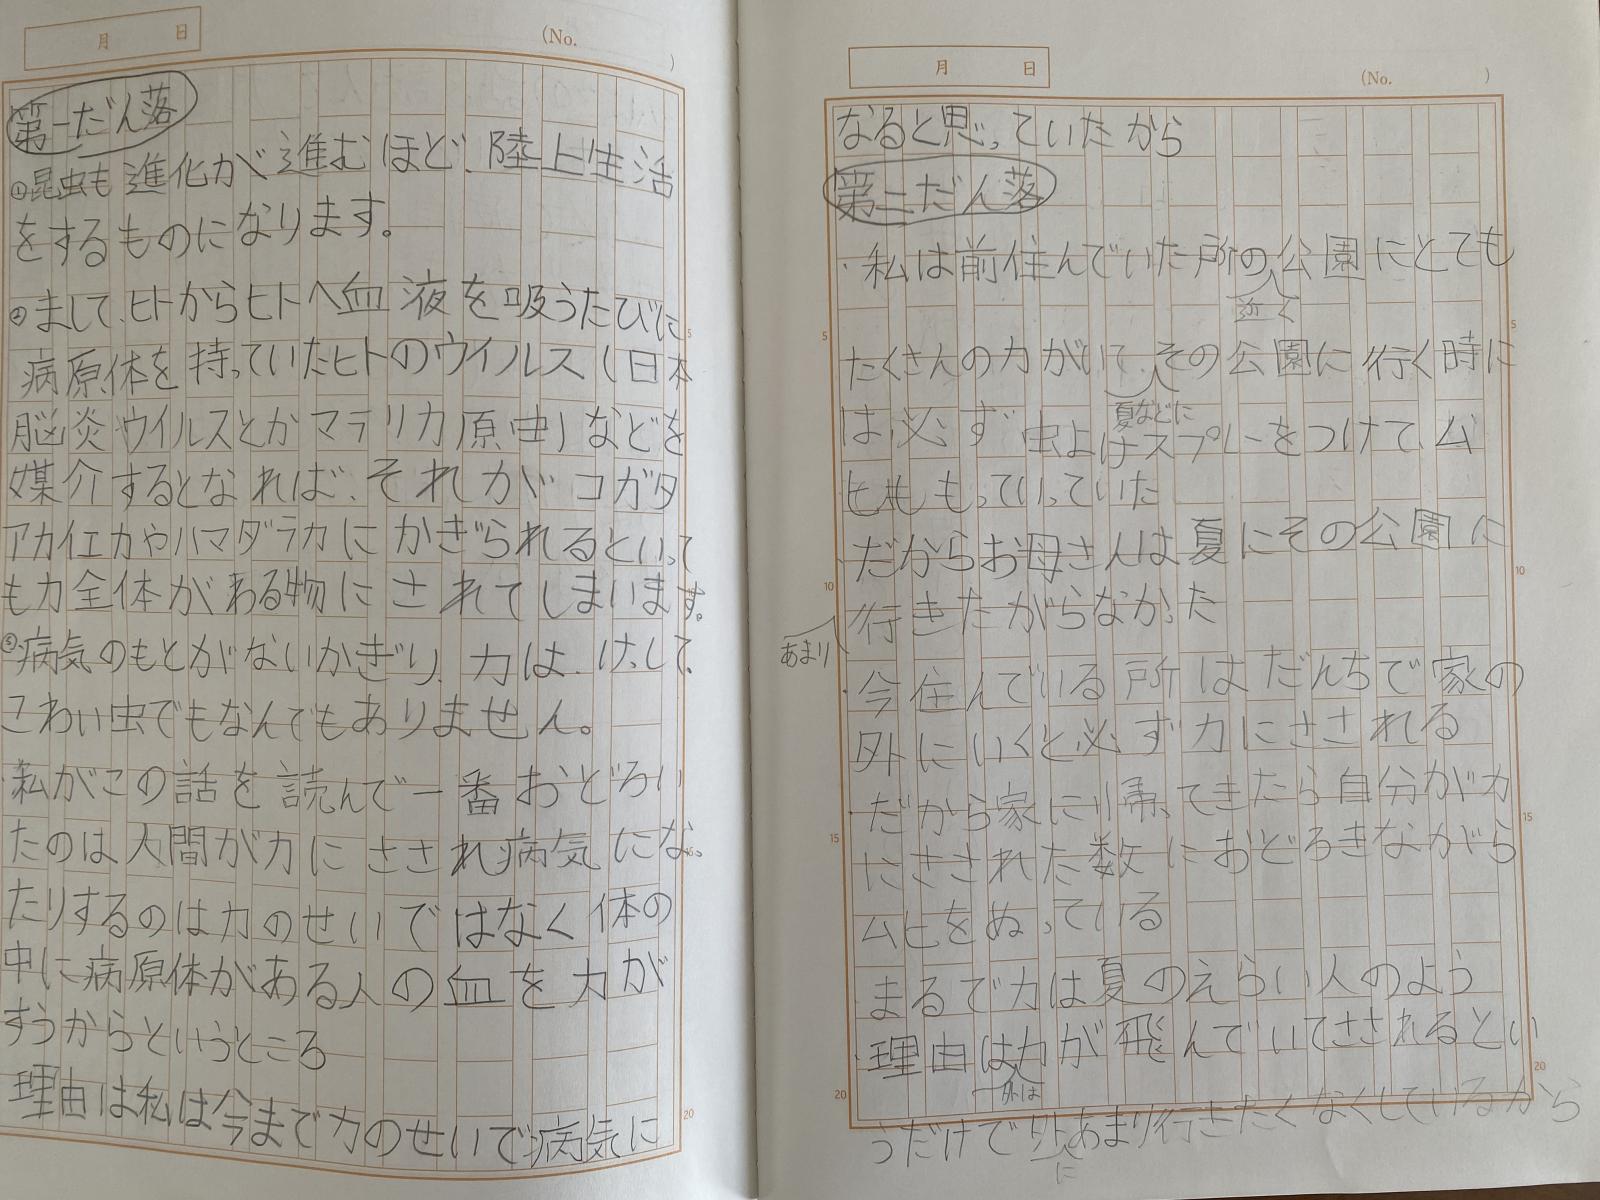 月 日
(No. )
第一だん落
①昆虫も進化が進むほど、陸上生活
をするものになります。
②まして、ヒトからヒトへ血液を吸うたびに
病原体を持っていたヒトのウイルス(日本
脳炎ウイルスとかマラリカ原虫)などを
媒介するとなれば、それがコガタ
アカイエカやハマダラカにかぎられるといって
もカ全体がある物にされてしまいます。
病気のもとがないかぎり、カは、けして、
こわい虫でもなんでもありません。
・私がこの話を読んで一番おどろい
たのは人間がカにさされ病気になっ
たりするのはカのせいではなく体の
中に病原体がある人の血をカが
すうからというところ
理由は私は今までカのせいで病気に
5
15
20
月 日
(No. )
なると思っていたから
第二だん落
・私は前住んでいた所の公園にとても
近く
たくさんのカがいて、その公園に行く時に
夏などに
は必ず虫よけスプレーをつけて、ム
ヒももっていっていた
だからお母さんは夏にその公園に
行きたがらなかった
あまり
・今住んでいる所はだんちで家の
外にいくと必ずカにさされる
・だから家に帰ってきたら自分がカ
にさされた数におどろきながら
ムヒをぬっている
・まるでカは夏のえらい人のよう
・理由はカが飛んでいてさされるとい
外は
うだけで外あまり行きたくなくしているから
に
5
10
15
20